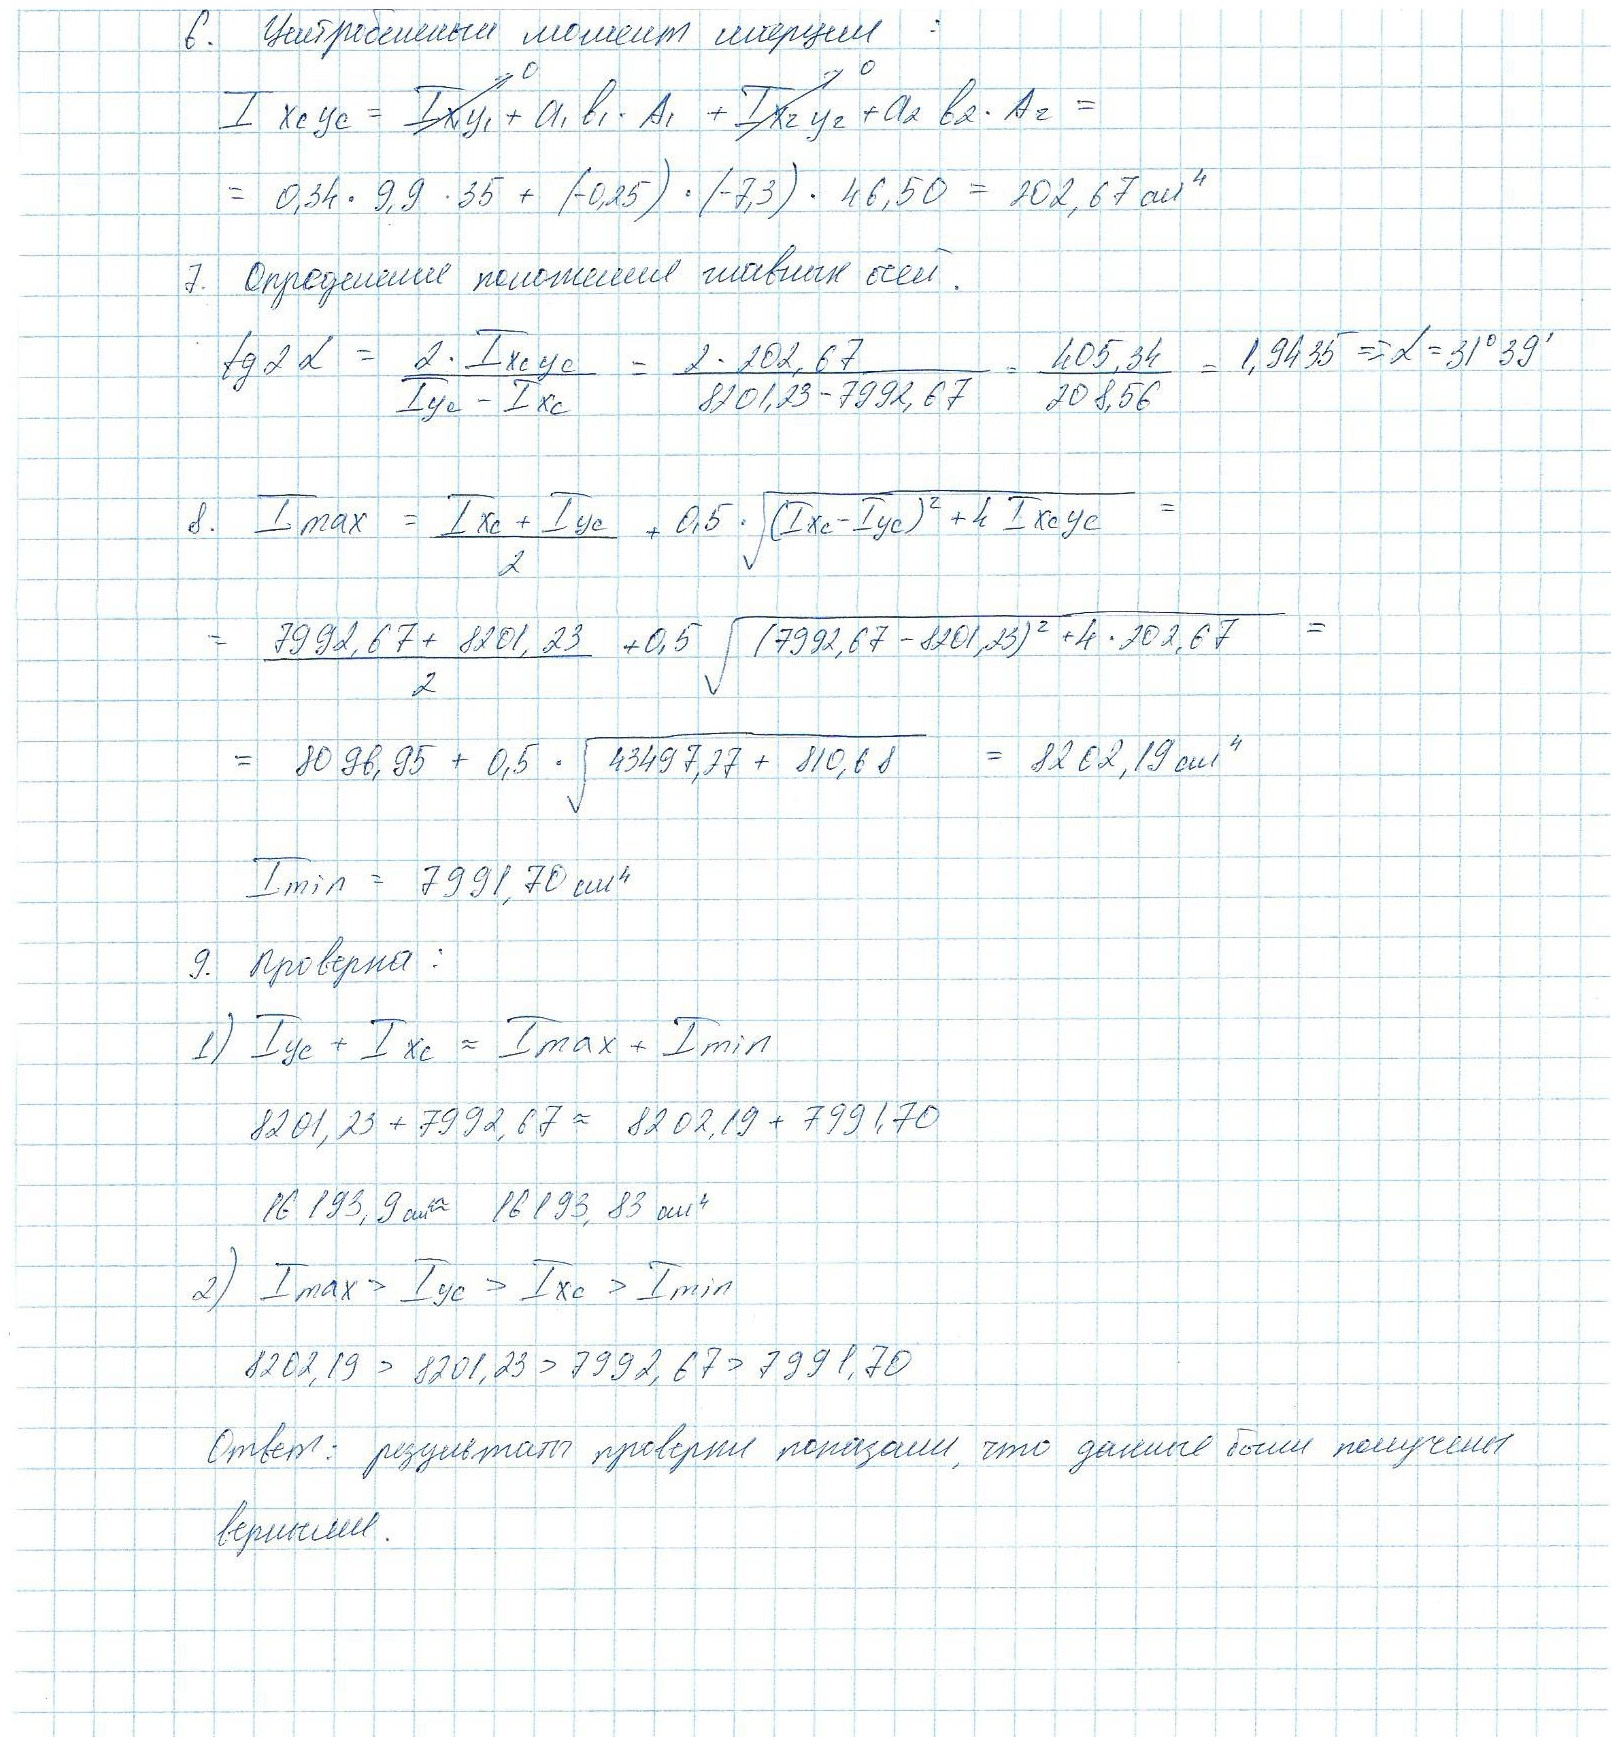 6. Центробежный момент инерции :
I xcyc = Ix₁y₁ → 0 + a₁ b₁ · A₁ + Ix₂y₂ → 0 + a₂ b₂ · A₂ =
= 0,34 · 9,9 · 35 + (-0,25) · (-7,3) · 46,50 = 202,67 см⁴
7. Определение положения главных осей.
tg 2α = 2 · Ixcyc / (Iyc - Ixc) = 2 · 202,67 / (8201,23 - 7992,67) = 405,34 / 208,56 = 1,9435 => α = 31° 39'
8. Imax = (Ixc + Iyc) / 2 + 0,5 · √((Ixc - Iyc)² + 4 Ixcyc) =
= (7992,67 + 8201,23) / 2 + 0,5 √((7992,67 - 8201,23)² + 4 · 202,67) =
= 8096,95 + 0,5 · √(43497,27 + 810,68) = 8202,19 см⁴
Imin = 7991,70 см⁴
9. Проверка :
1) Iyc + Ixc ≈ Imax + Imin
8201,23 + 7992,67 ≈ 8202,19 + 7991,70
16193,9 см⁴ ≈ 16193,83 см⁴
2) Imax > Iyc > Ixc > Imin
8202,19 > 8201,23 > 7992,67 > 7991,70
Ответ: результаты проверки показали, что данные были получены
верными.